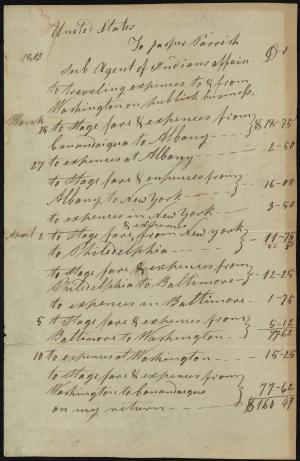 United States
To Jasper Parrish Dr
1813
Sub Agent of Indians affairs
to traveling expenses to & from
Washington on publick business,
March
25 to Stage fare & expenses from
Canandaigua to Albany - - - } $18-75
27 to expenses at Albany - - - - 2-50
to Stage fare & expenses from
Albany to New York - - - - } 16-00
to expenses in New York - - - - 3-50
April 2 to Stage fare & expenses from New York
to Philadelphia - - - - - } 11-75
to Stage fare & expenses from
Philadelphia to Baltimore - } 12-25
to expenses in Baltimore - - 1-75
5 to Stage fare & expenses from
Baltimore to Washington - - } 5-12
77 62
10 to expenses at Washington - - - 15-25
to Stage fare & expenses from
Washington to Canandaigua
on my return - - - - - } 77-62
$160 49